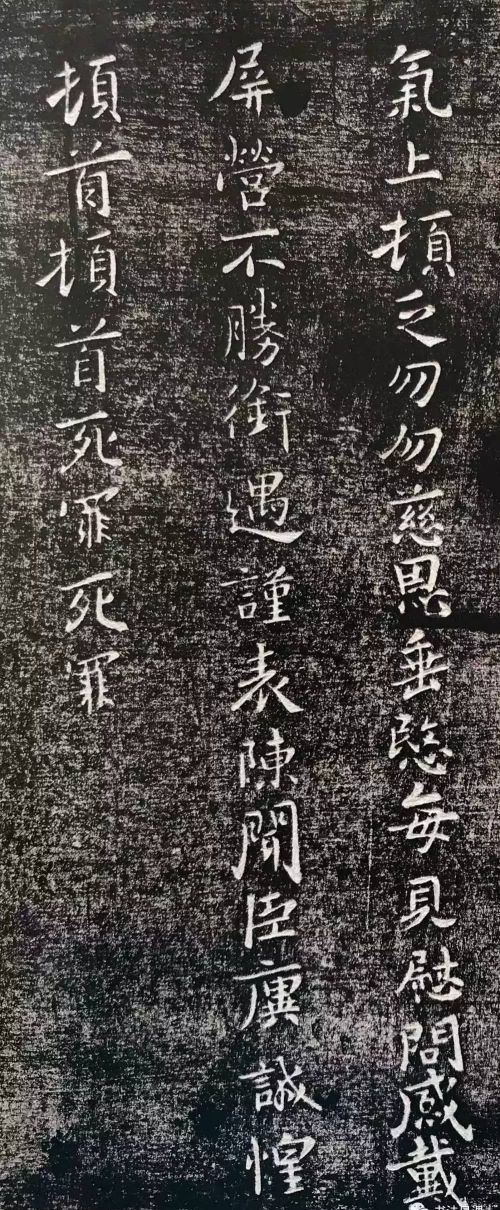 氣上頓乏勿勿慈恩垂愍每見慰問感戴
屏營不勝銜遇謹表陳聞臣廙誠惶
頓首頓首死罪死罪